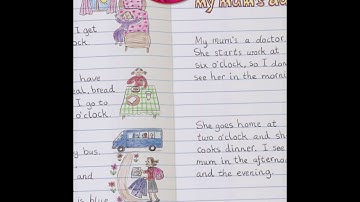 My mum's da
I get
ock.
have
eal, bread
I go to
o'clock.
y bus.
and
is blue
My mum's a doctor
She starts work at
six o'clock, so I don
see her in the morni
She goes home at
two o'clock and sh
cooks dinner. I see
mum in the afterno
and the evening.